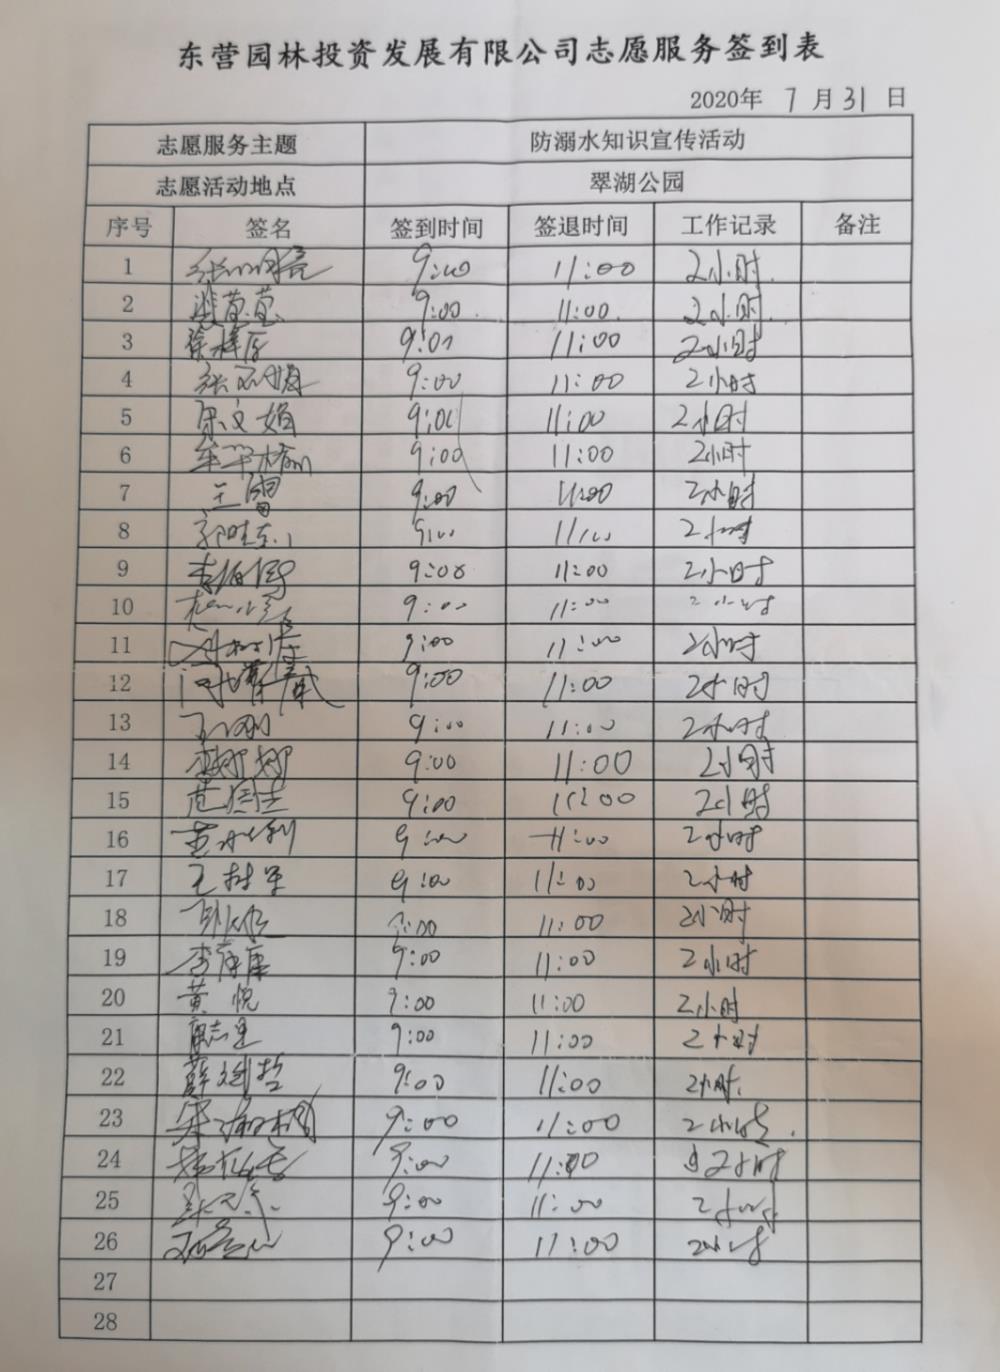 东营园林投资发展有限公司志愿服务签到表
2020年 7 月 31 日
志愿服务主题 防溺水知识宣传活动
志愿活动地点 翠湖公园
序号 签名 签到时间 签退时间 工作记录 备注
1 9:00 11:00 2小时.
2 9:00. 11:00. 2小时.
3 9:00 11:00 2小时
4 9:00 11:00 2小时
5 宋文娟 9:00 11:00 2小时
6 9:00 11:00 2小时
7 王雷 9:00 11:00 2小时
8 9:00 11:00 2小时
9 9:00 11:00 2小时
10 9:00 11:00 2小时
11 9:00 11:00 2小时
12 9:00 11:00 2小时
13 9:00 11:00 2小时
14 李娜娜 9:00 11:00 2小时
15 9:00 11:00 2小时
16 9:00 11:00 2小时
17 王树军 9:00 11:00 2小时
18 9:00 11:00 2小时
19 9:00 11:00 2小时
20 黄悦 9:00 11:00 2小时
21 9:00 11:00 2小时
22 9:00 11:00 2小时.
23 9:00 11:00 2小时.
24 9:00 11:00 2小时
25 9:00 11:00 2小时
26 9:00 11:00 2小时
27
28